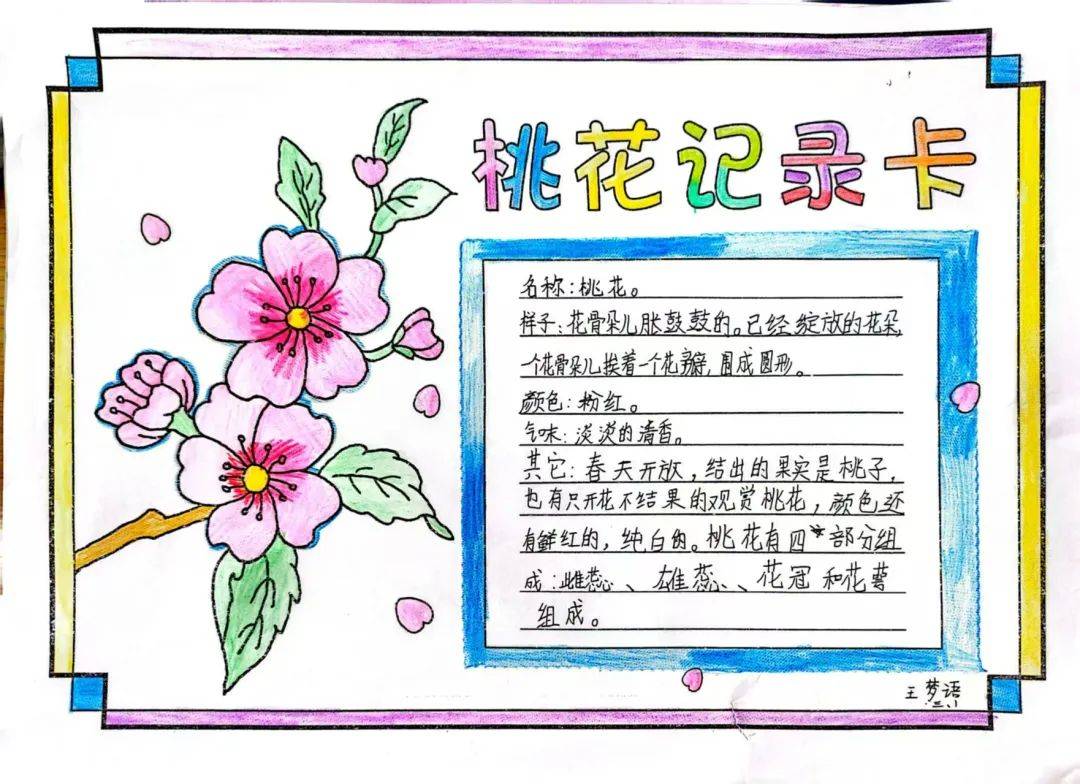 桃花记录卡
名称:桃花。
样子:花骨朵儿胀鼓鼓的。已经绽放的花朵,
一个花骨朵儿挨着一个花瓣,围成圆形。
颜色:粉红。
气味:淡淡的清香。
其它:春天开放,结出的果实是桃子,
也有只开花不结果的观赏桃花,颜色还
有鲜红的,纯白的。桃花有四个部分组
成:雌蕊、雄蕊、花冠和花萼
组成。
王梦语
三.1